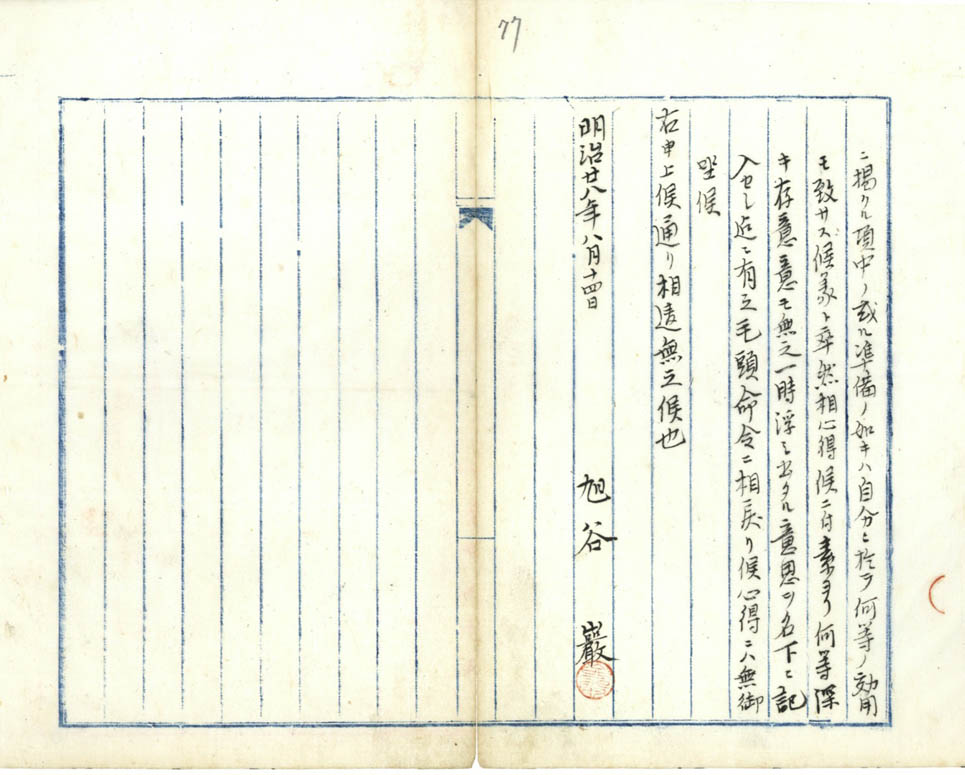 77
ニ掲クル項中ノ或ル準備ノ如キハ自分ニ於テ何等ノ効用
モ致サズ候ト卒然相心得候ニ付素ヨリ何等深
キ存意意モ無之一時浮ミ出タル意思ヲ名下ニ記
入セシ迄ニ有之毛頭命令ニ相戻リ候心得ニハ無御
坐候
右申上候通リ相違無之候也
明治廿八年八月十四日
旭谷 巖